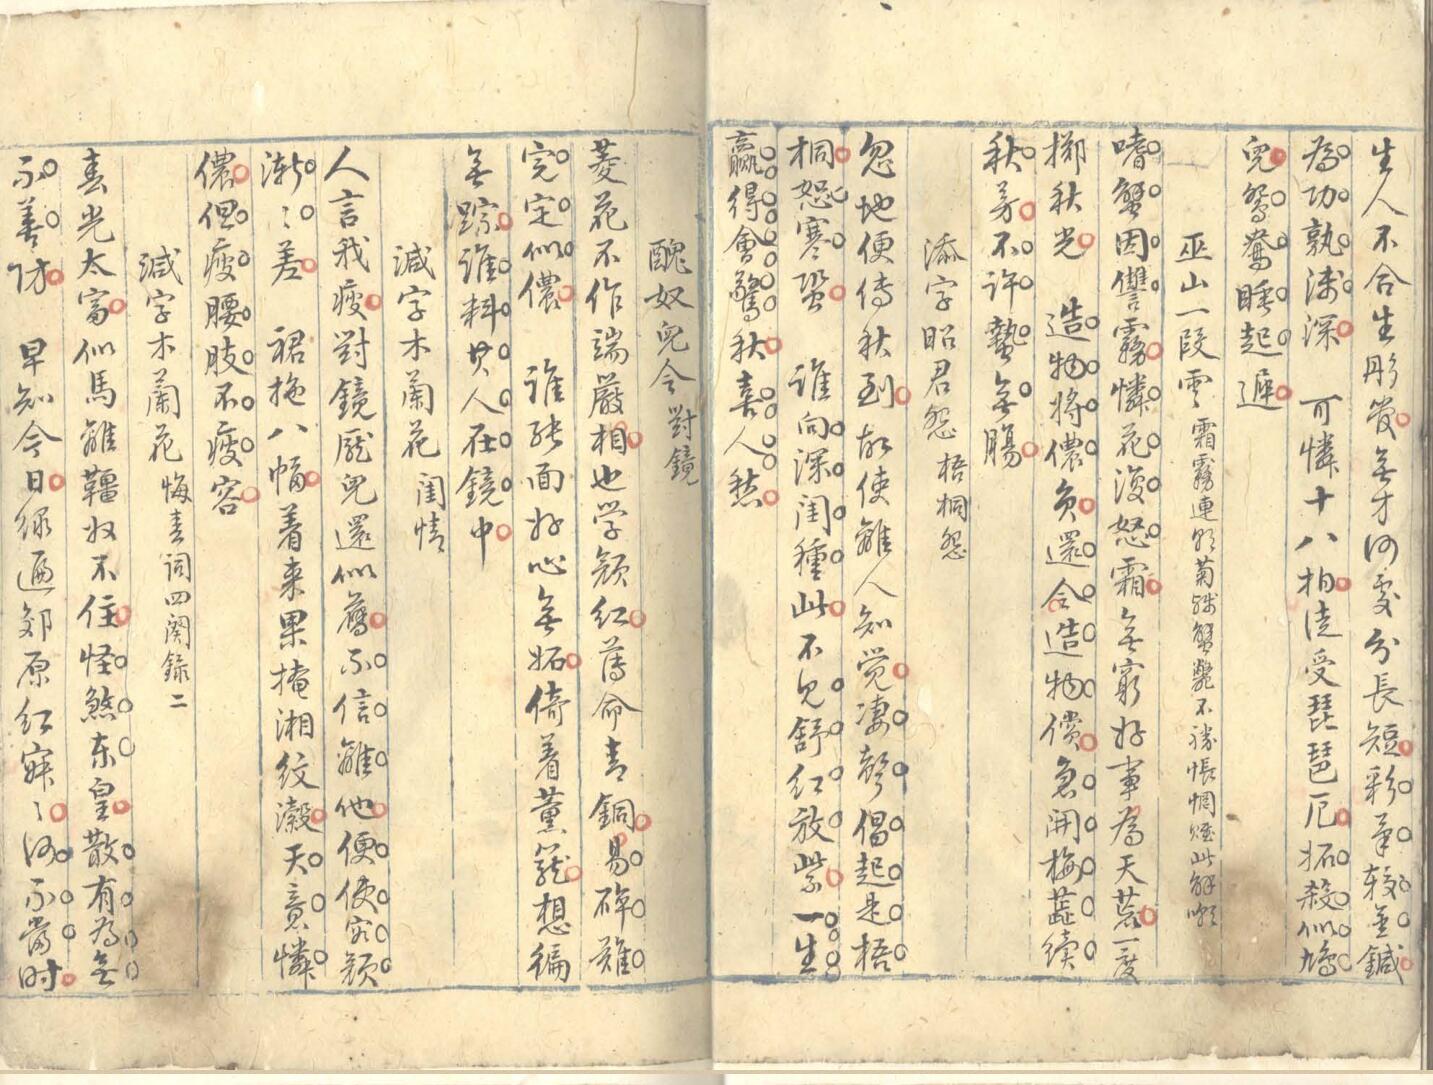 生人不合生彤管無才何處分長短彩筆較金鍼
為功孰淺深 可憐十八拍徒受琵琶厄拓殺似鳩
兒鴛鴦睡起遲
巫山一段雲 霜霧連朝菊殘蟹斃不勝悵惘賦此解嘲
嗜蟹因讐霧憐花復怒霜無窮好事為天荒一度
擲秋光 造物將儂負還合造物償急開梅蕋續
秋芳不許蟄無腸
添字昭君怨 梧桐怨
忽地便傳秋到故使離人知覺淒聲倡起是梧
桐恕寒蛩 誰向深閨種此不見舒紅放紫一生
贏得會驚秋喜人愁
醜奴兒令 對鏡
菱花不作端嚴相也学顏紅薄命青銅易碎難
完定似儂 誰能面好心無妬倚着薰籠想徧
無蹤誰料其人在鏡中
減字木蘭花 閨情
人言我瘦對鏡龐兒還似舊不信離他便使容顏
漸〻差 裙拖八幅着来果掩湘紋瀫天竟憐
儂但瘦腰肢不瘦容
減字木蘭花 悔春詞四闋錄二
春光太富似馬離韁收不住怪煞東皇散有為無
不善防 早知今日綠遍郊原紅寂〻何不當時